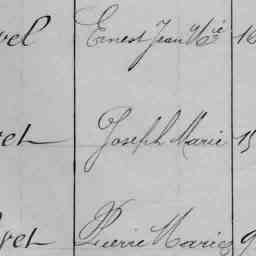 vel Ernest Jean Mie 16
vet Joseph Marie 15
vet Pierre Marie 9